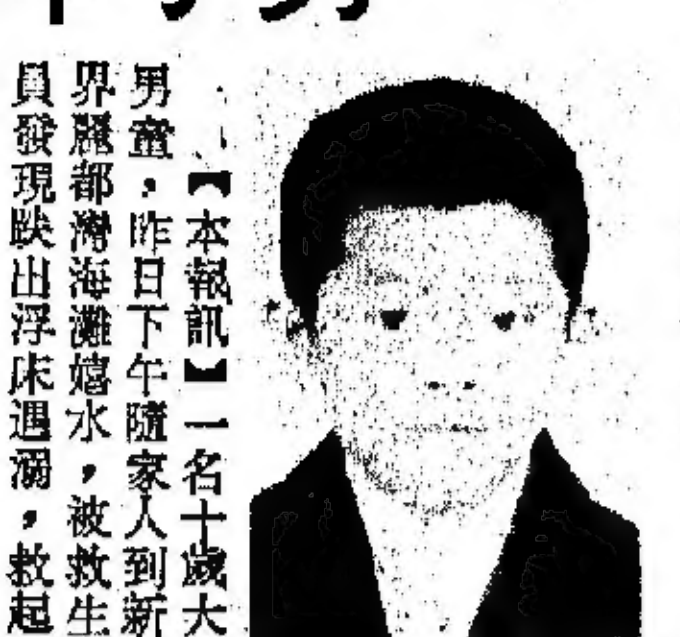 【本報訊】一名十歲大
男童，昨日下午隨家人到新
界麗都灣海灘嬉水，被救生
員發現跌出浮床遇溺，救起